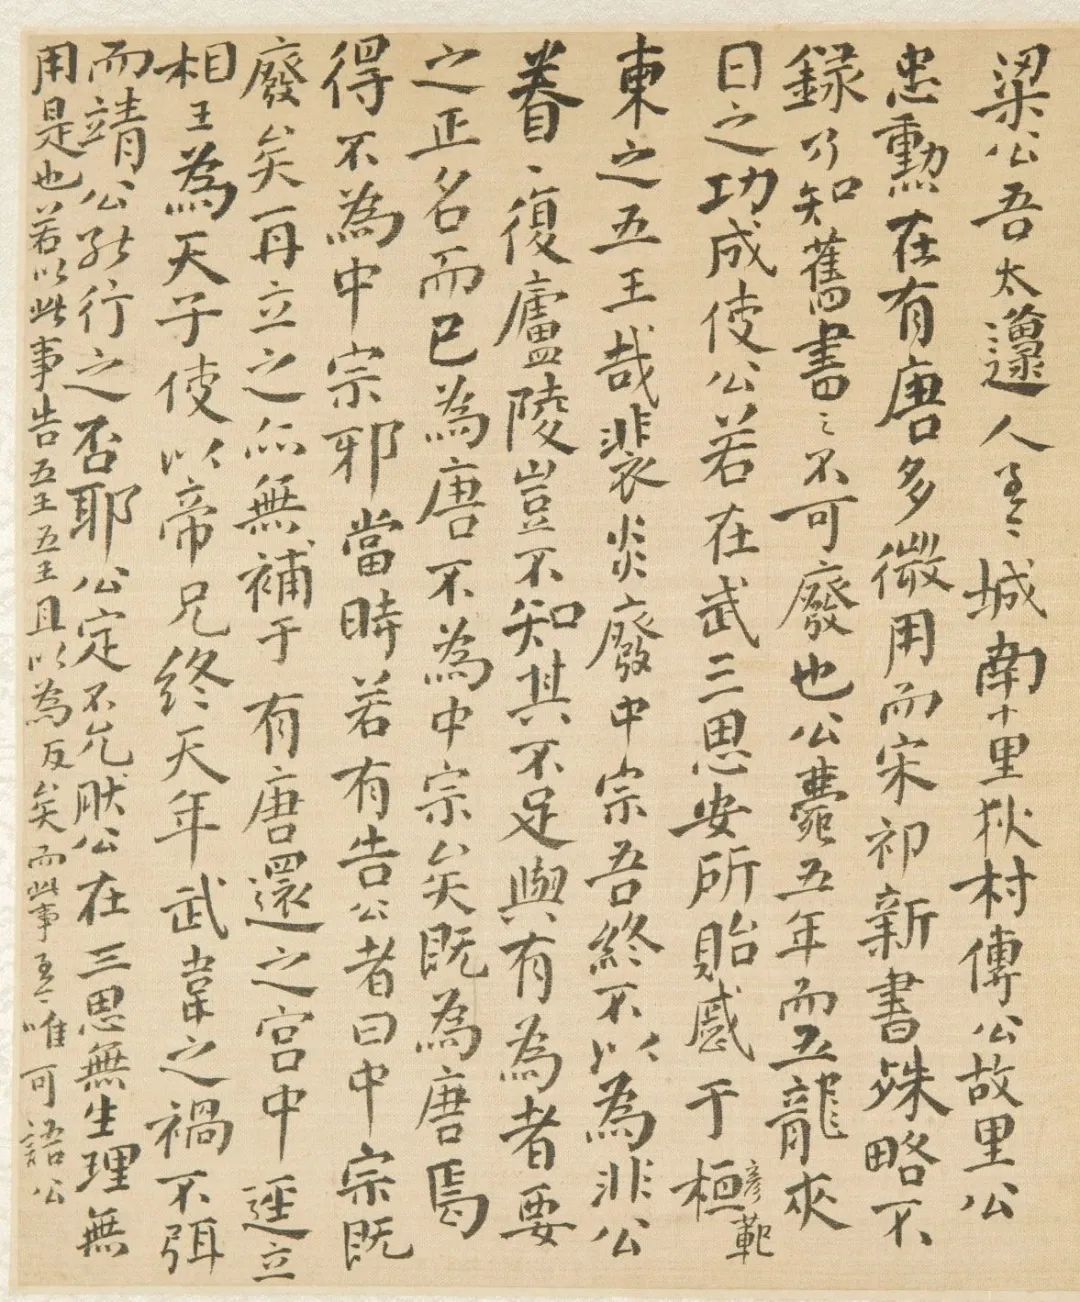 梁公吾太邍人今城南十里狄村傳公故里公
忠勳在有唐多微用而宋祁新書殊略不
録乃知舊書之不可廢也公薨五年而五龍夾
日之功成使公若在武三思安所貽慼于桓彦範
東之五王哉裴炎廢中宗吾終不以為非公
眷〻復廬陵豈不知其不足與有為者要
之正名而已為唐不為中宗矣既為唐焉
得不為中宗邪當時若有告公者曰中宗既
廢矣再立之而無補于有唐還之宮中逕立
相王為天子使以帝兄終天年武韋之禍不弭
而靖公能行之否耶公定不允肰公在三思無生理無
用是也若以此事告五王五王且以為反矣而此事唯可語公